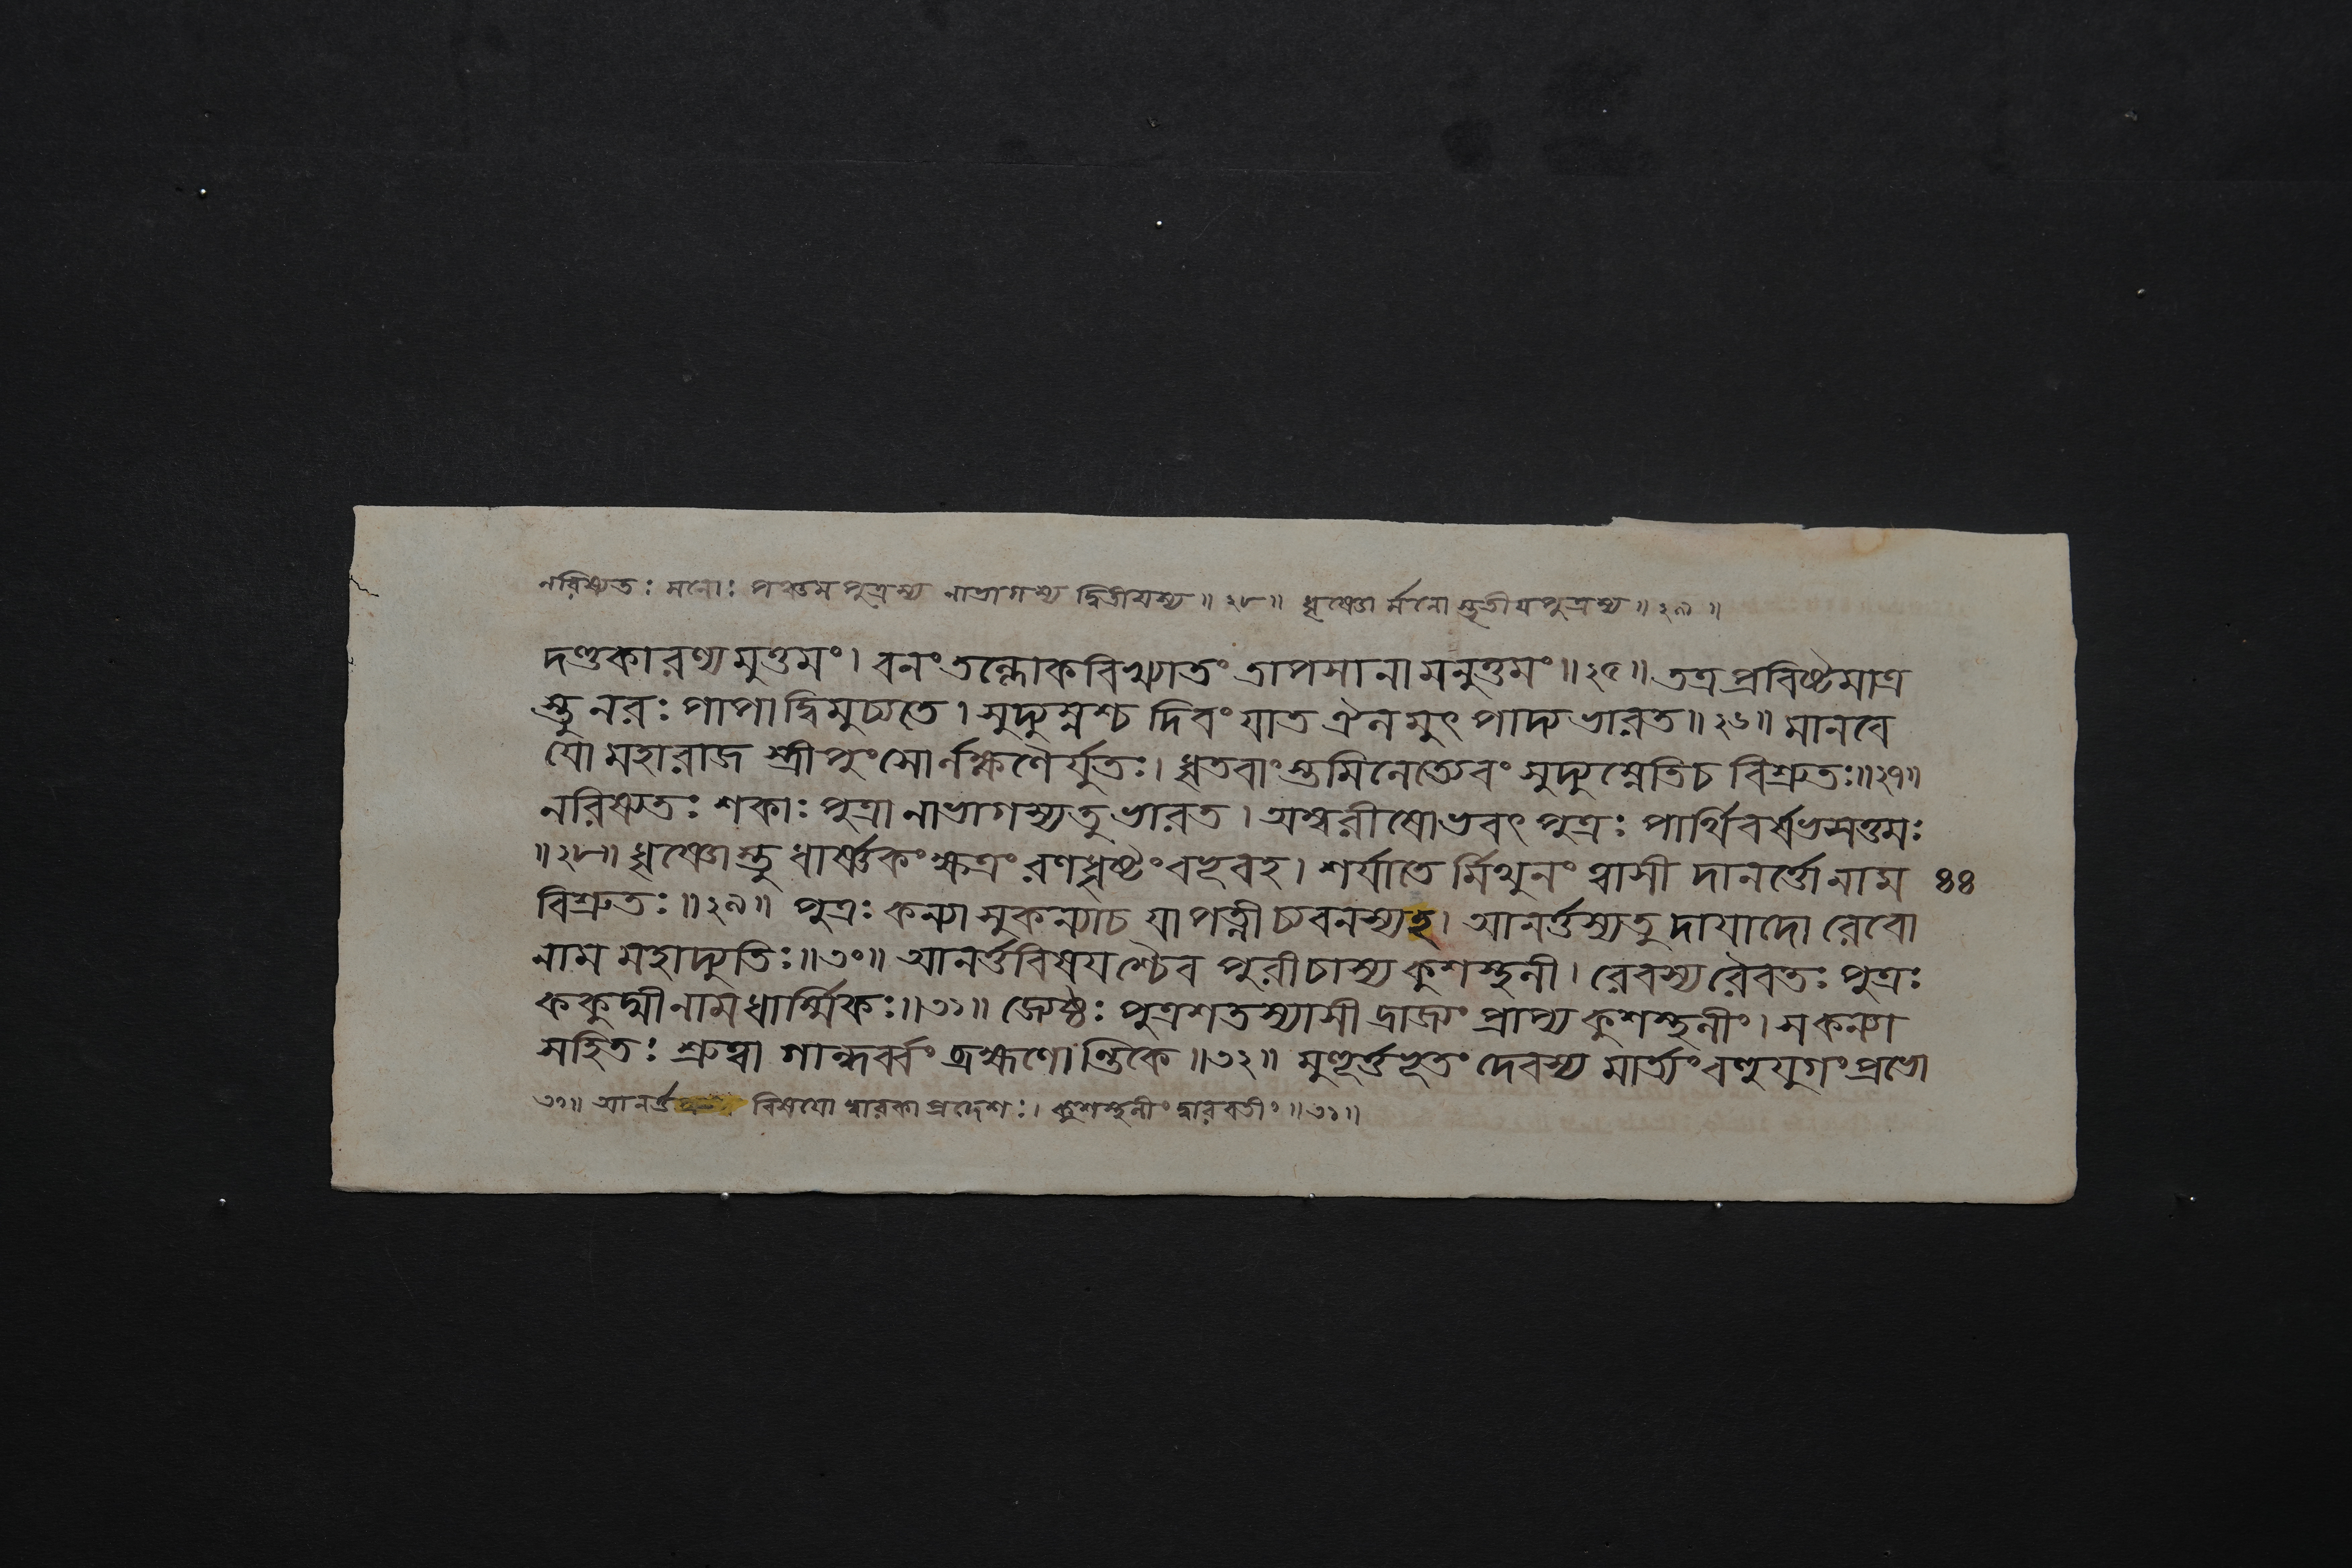 নরিষ্যতঃ মনোঃ পঞ্চমপুত্রস্য নাভাগস্য দ্বিতীয়স্য ॥ ২৮ ॥ ধৃষ্ণো র্মনো স্তৃতীযপুত্রস্য ॥ ২৯ ॥
দণ্ডকারণ্যমুত্তমং । বনং তল্লোকবিখ্যাতং তাপসানামনুত্তমং ॥ ২৫ ॥ তত্র প্রবিষ্টমাত্র
স্তু নরঃ পাপাদ্বিমুচ্যতে । সুদ্যুম্নশ্চ দিবং যাত ঐনমুৎপাদ্য ভারত ॥ ২৬ ॥ মানবে
যো মহারাজ স্ত্রীপুংসোর্লক্ষণৈর্যুতঃ । ধৃতবাংস্তমিলেত্যেবং সুদ্যুম্নেতি চ বিশ্রুতঃ ॥ ২৭ ॥
নরিষ্যতঃ শকাঃ পুত্রা নাভাগস্য তু ভারত । অম্বরীষোভবৎ পুত্রঃ পার্থিবর্ষভসত্তমঃ
॥ ২৮ ॥ ধৃষ্ণোস্তু ধার্ষ্ণকং ক্ষত্রং রণধৃষ্টং বহূবহ । শর্যাতে র্মিথুনং ত্বাসী দানর্ত্তো নাম ৪৪
বিশ্রুতঃ ॥ ২৯ ॥ পুত্রঃ কন্যা সুকন্যা চ যা পত্নী চ্যবনস্য হ । আনর্ত্তস্য তু দাযাদো রেবো
নাম মহাদ্যুতিঃ ॥ ৩০ ॥ আনর্ত্তবিষযশ্চৈব পুরী চাস্য কুশস্থলী । রেবস্য রৈবতঃ পুত্রঃ
ককুদ্মী নাম ধার্ম্মিকঃ ॥ ৩১ ॥ জ্যেষ্ঠঃ পুত্রশতস্যাসী দ্রাজ্যং প্রাপ্য কুশস্থলীং । স কন্যা
সহিতঃ শ্রুত্বা গান্ধর্ব্বং ব্রহ্মণোন্তিকে ॥ ৩২ ॥ মুহূর্ত্তভূতং দেবস্য মার্ত্যং বহুযুগং প্রভো
৩১ ॥ আনর্ত্ত বিষযো দ্বারকাপ্রদেশঃ । কুশস্থলীং দ্বারবতীং ॥ ৩১ ॥